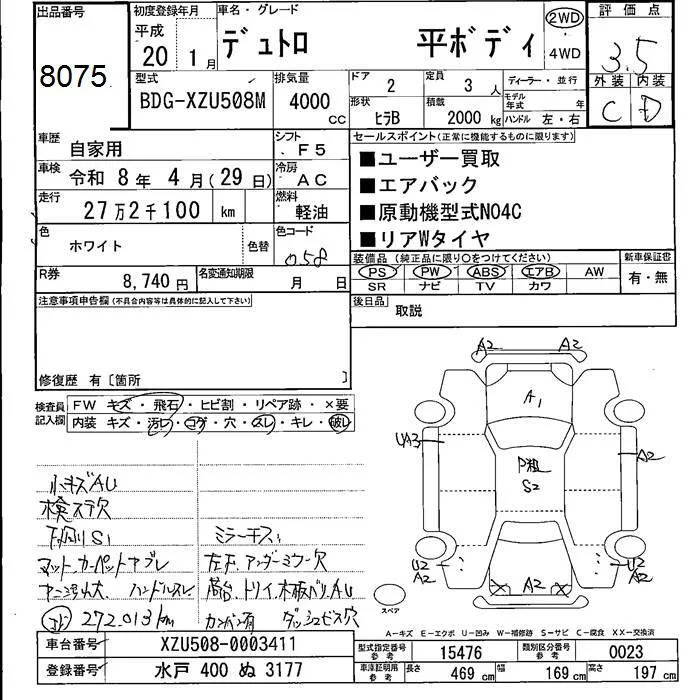 出品番号
8075
初度登録年月
平成
20 1月
車名・グレード
デュトロ 平ボディ
2WD
・
4WD
評価点
3.5
型式
BDG-XZU508M
排気量
4000 CC
ドア 2
定員 3 人
ディーラー・並行
形状 ヒラB
積載 2000 kg
モデル年式 年
ハンドル 左・右
外装 内装
C D
車歴 自家用
シフト F5
車検 令和 8年 4月(29日)
冷房 AC
走行 27万2千100 km
燃料 軽油
色 ホワイト 色替
色コード 058
R券 8,740円
名変通知期限 月 日
セールスポイント(正常に機能するものに限ります)
■ユーザー買取
■エアバック
■原動機型式N04C
■リアWタイヤ
装備品(純正品に限り○をつけてください)
PS PW ABS エアB AW
SR ナビ TV カワ
新車保証書
有・無
後日品
取説
注意事項申告欄(不具合内容等は具体的に記入して下さい)
修復歴 有〔箇所 〕
検査員記入欄
FW キズ・飛石・ヒビ割・リペア跡・×要
内装 キズ・汚レ・コゲ・穴・スレ・キレ・破レ
小キズAU
検ステ欠
下廻りS1
ミラーキズ
マット、カーペットヤブレ
左下アンダーミラー欠
ハンドルスレ
272,013km
カンバン有
ダッシュビス穴
A2 A2
A1
UA3
P粗
S2
A2
U2
A2
A2
U2
A2
スペア
A-キズ E-エクボ U-凹み W-補修跡 S-サビ C-腐食 XX-交換済
車台番号 XZU508-0003411
登録番号 水戸 400 ぬ 3177
型式指定番号 参考 15476
類別区分番号 参考 0023
車庫証明用 参考 長さ 469 cm 幅 169 cm 高さ 197 cm